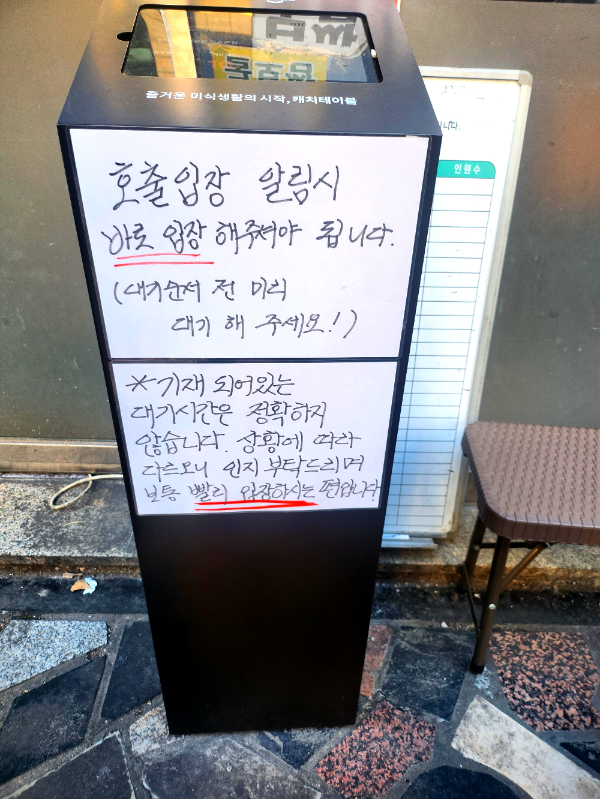 즐거운 미식생활의 시작, 캐치테이블
호출입장 알림시
바로 입장 해주셔야 됩니다.
(대기순서 전 미리
대기 해 주세요!)
※기재 되어있는
대기시간은 정확하지
않습니다. 상황에 따라
다르오니 인지 부탁드리며
보통 빨리 입장하시는 편입니다
니다.
인원수